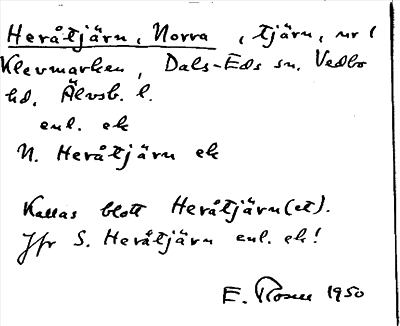 Heråtjärn, Norra, tjärn, nr 1
Klevmarken, Dals-Eds sn. Vedbo
hd, Älvsb. l.
enl. ek
N. Heråtjärn ek
Kallas blott Heråtjärn(et).
Jfr S. Heråtjärn enl. ek!
E. Rosell 1950